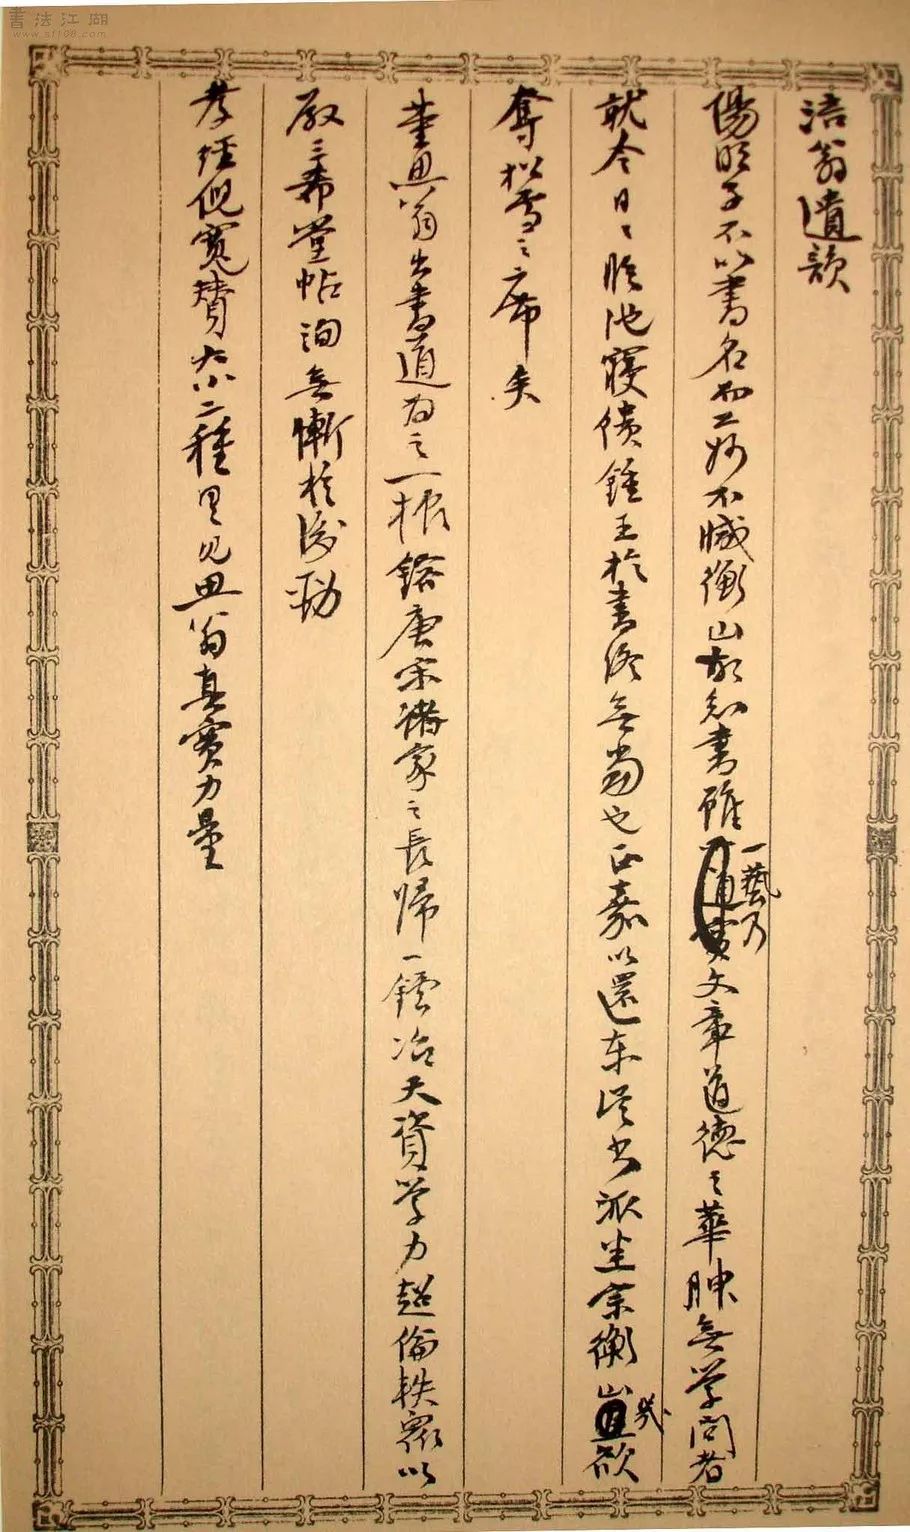 書法江湖
www.sf108.com
涪翁遺韻
陽明子不以書名而工妙不減衡山故知書雖一藝乃實文章道德之華腴無學問者
就令日日臨池寢饋鍾王於書終無當也正嘉以還東吳書派坐令衡山幾欲
奪松雪之席矣
董思翁出書道為之一振鎔唐宋諸家之長歸一鑪冶天資學力超倫軼眾以
殿三希堂帖洵無慚於後勁
孝經倪寬贊大小二種里見思翁真實力量